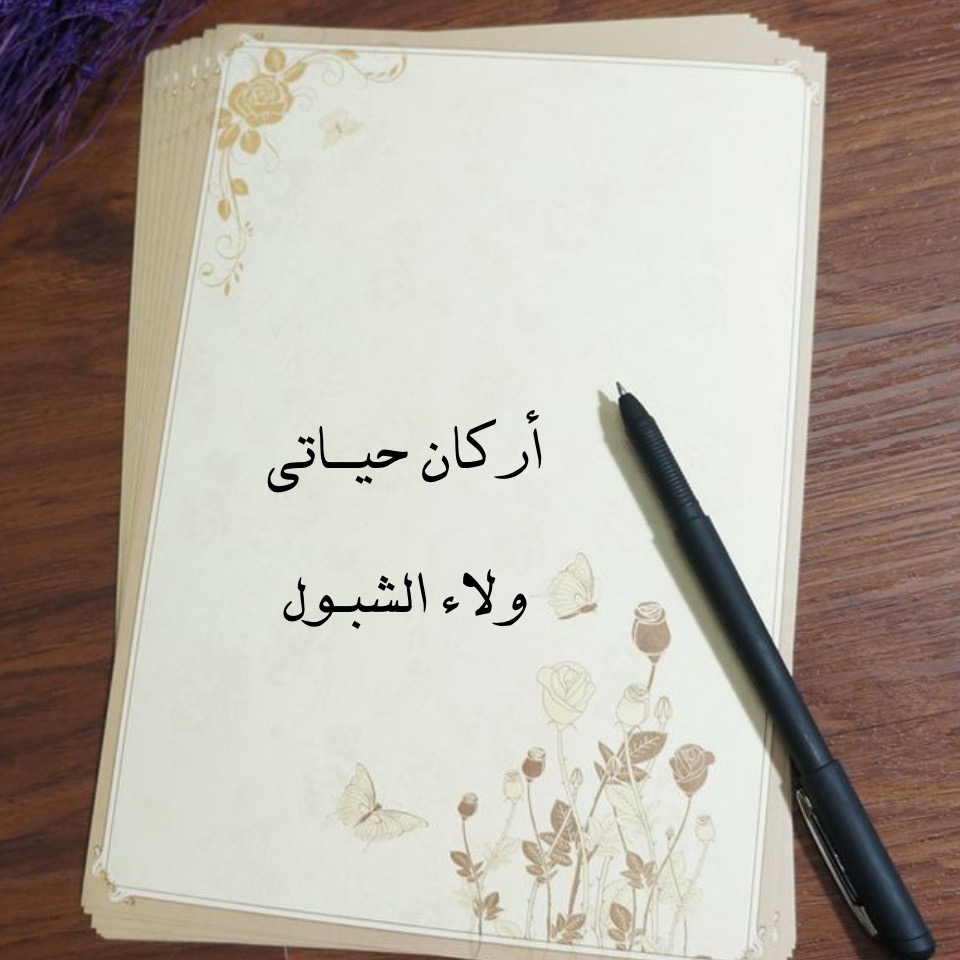 أركان حيــاتى
ولاء الشبــول